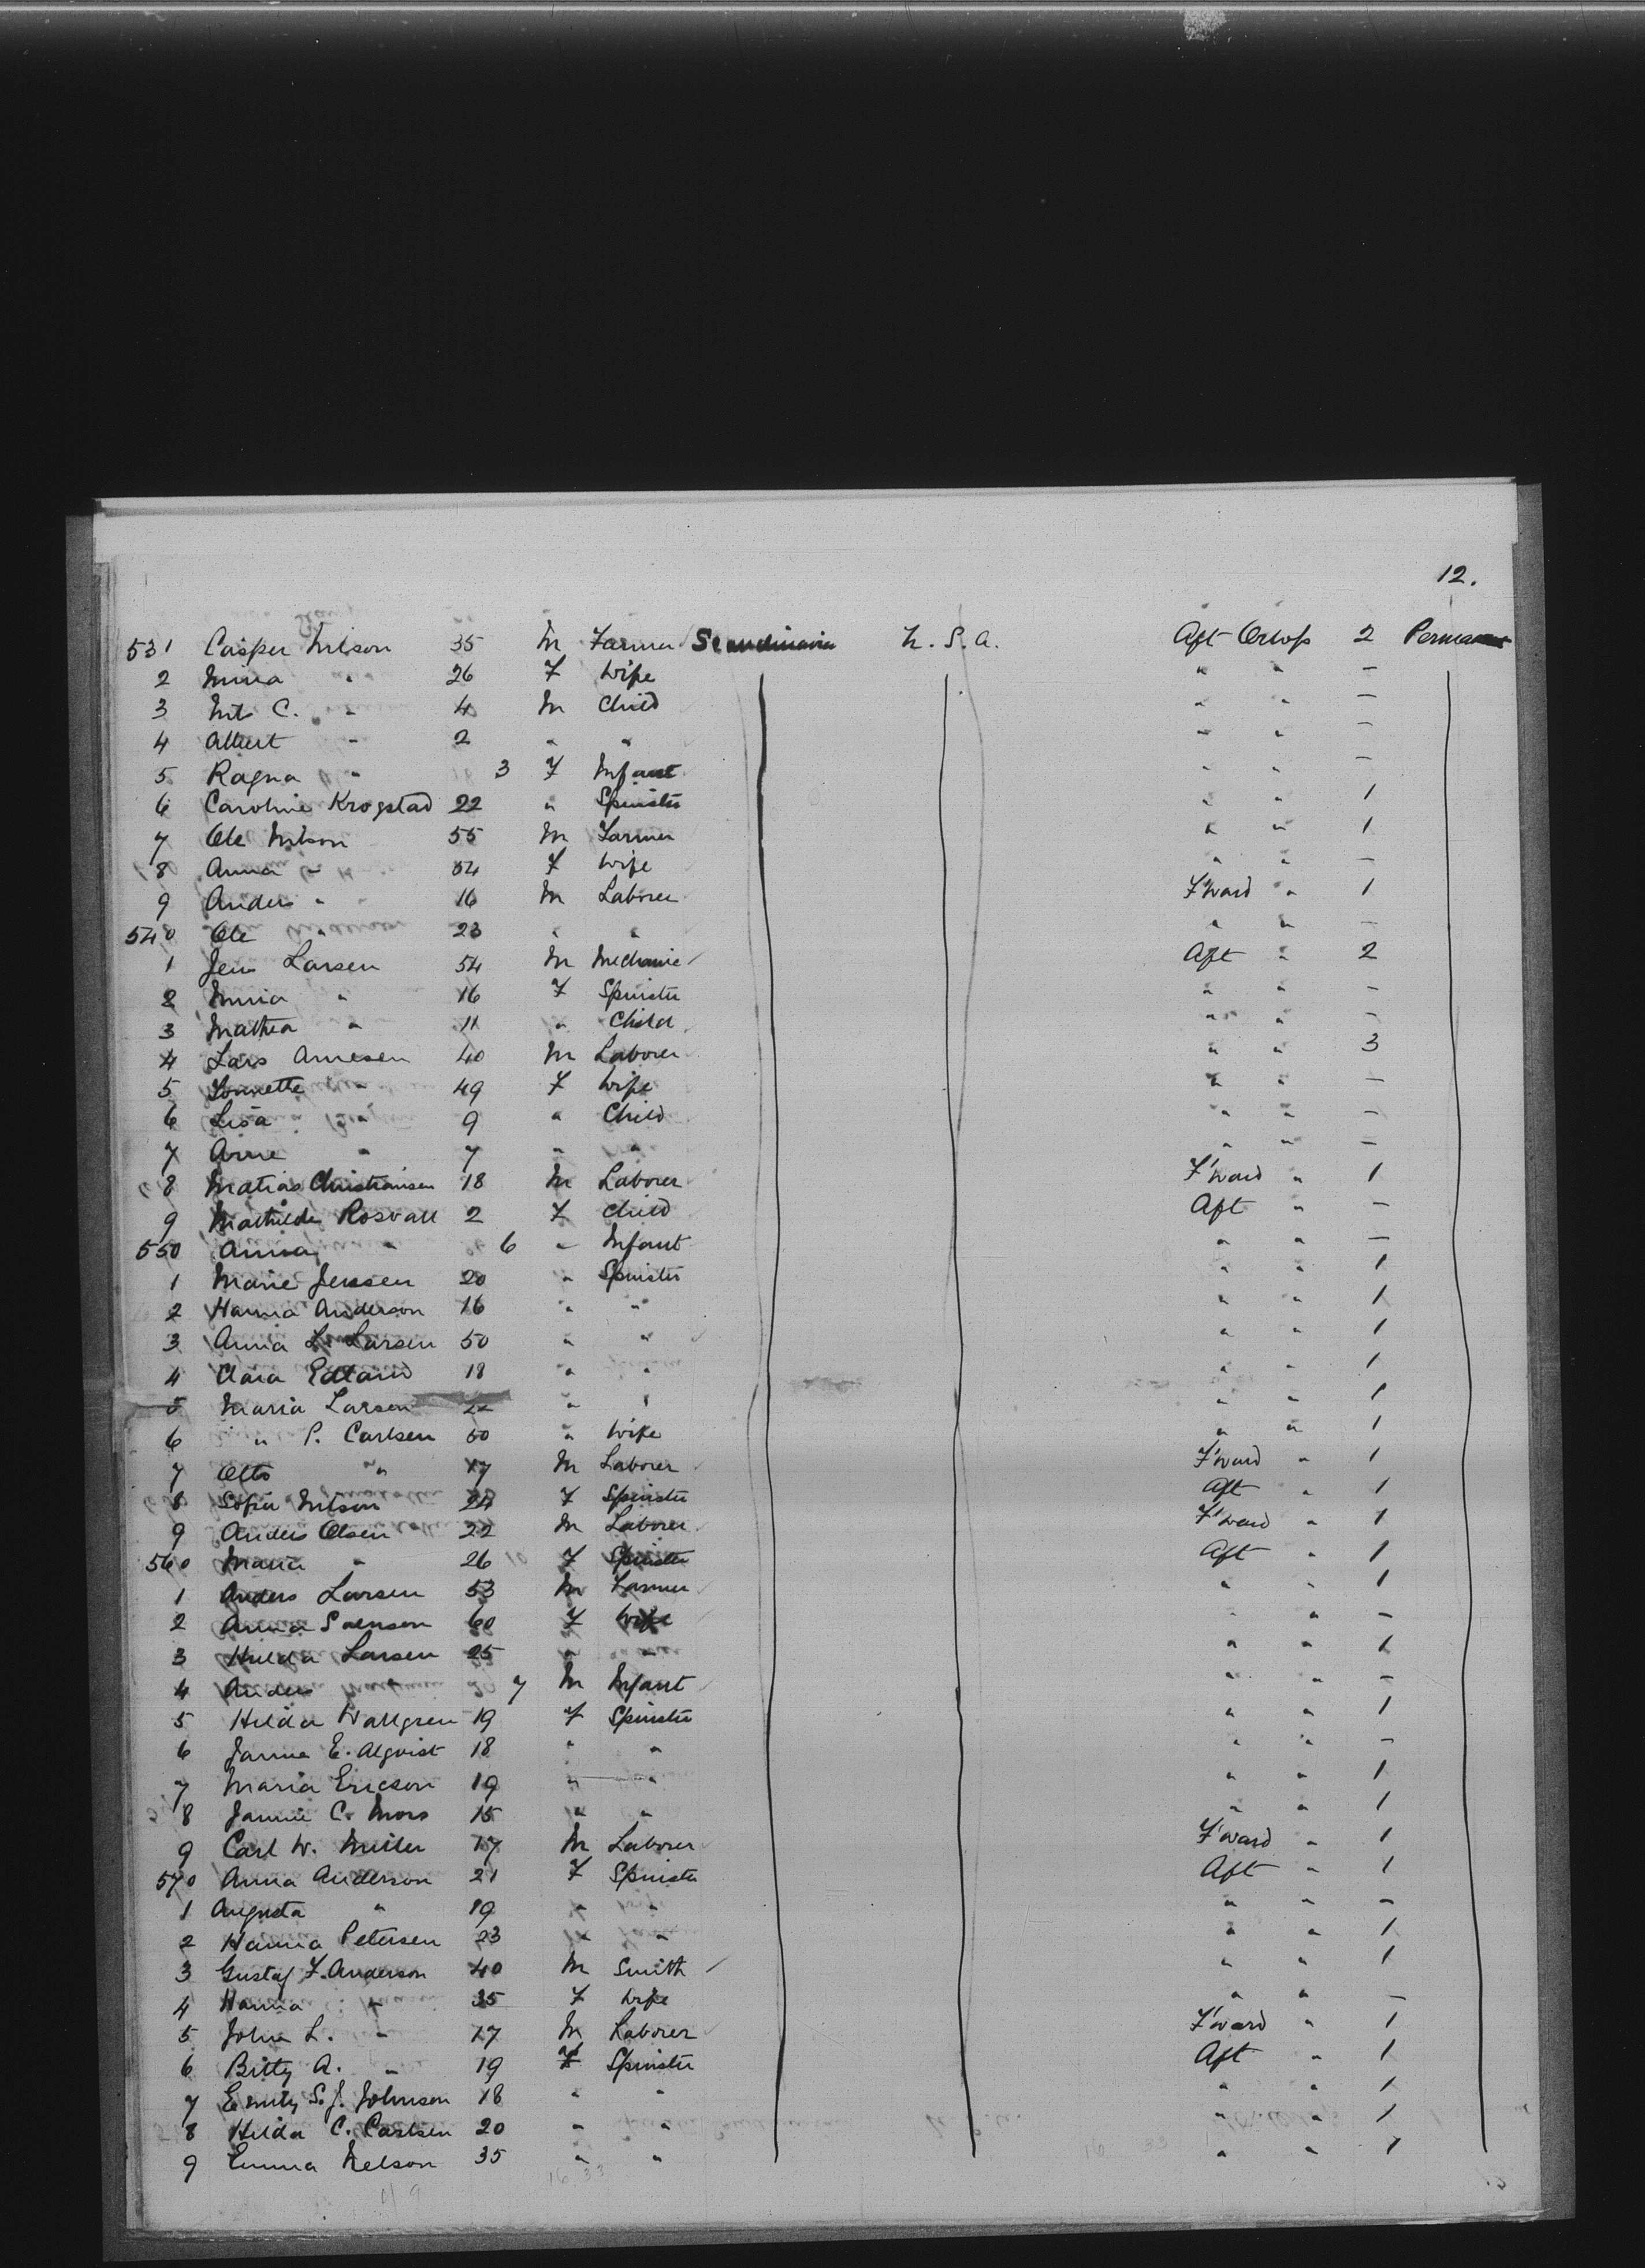 12.
531 Casper Nilson 35 M Farmer Scandinavia U.S.A. Aft Orlop 2 Permanent
2 Nina " 26 F Wife " " -
3 Nils C. " 4 M Child " " -
4 Albert " 2 " " " " -
5 Ragna " 3 F Infant " " -
6 Caroline Krogstad 22 " Spinster " " 1
7 Ole Nilson 55 M Farmer " " 1
8 Anna " 54 F Wife " " -
9 Anders " 16 M Laborer F'ward " 1
540 Ole " 23 " " " " -
1 Jens Larsen 54 M Mechanic Aft " 2
2 " 16 F Spinster " " -
3 Mathea " 11 " Child " " -
4 Lars Arnesen 40 M Laborer " " 3
5 " 49 F Wife " " -
6 Lisa " 9 " Child " " -
7 Arne " 7 " " " " -
8 Matias Christiansen 18 M Laborer F'ward " 1
9 Mathilde Rosvall 2 F Child Aft " -
550 Anna " 6 " Infant " " -
1 Marie Jenssen 20 " Spinster " " 1
2 Hanna Anderson 16 " " " " 1
3 Anna L. Larsen 50 " " " " 1
4 Clara 18 " " " " 1
5 Maria Larsen 22 " " " " 1
6 " P. Carlsen 50 " Wife " " 1
7 Otto " 17 M Laborer F'ward " 1
8 Sofia Nilson 24 F Spinster Aft " 1
9 Anders Olsen 22 M Laborer F'ward " 1
560 Maria " 26 F Spinster Aft " 1
1 Anders Larsen 53 M Farmer " " 1
2 Anna Svenson 60 F Wife " " -
3 Hulda Larsen 25 " " " " 1
4 Anders " 7 M Infant " " -
5 Hilda Wallgren 19 F Spinster " " 1
6 Janna E. Alqvist 18 " " " " -
7 Maria Ericson 19 " " " " 1
8 Jannie C. Mors 15 " " " " 1
9 Carl W. Miller 17 M Laborer F'ward " 1
570 Anna Anderson 21 F Spinster Aft " 1
1 Augusta " 19 " " " " -
2 Hanna Petersen 23 " " " " 1
3 Gustaf F. Anderson 40 M Smith " " 1
4 Hanna " 35 F Wife " " -
5 John L. " 17 M Laborer F'ward " 1
6 Betty A. " 19 F Spinster Aft " 1
7 Emily S. J. Johnson 18 " " " " 1
8 Hilda C. Carlsen 20 " " " " 1
9 Emma Nelson 35 " " " " 1